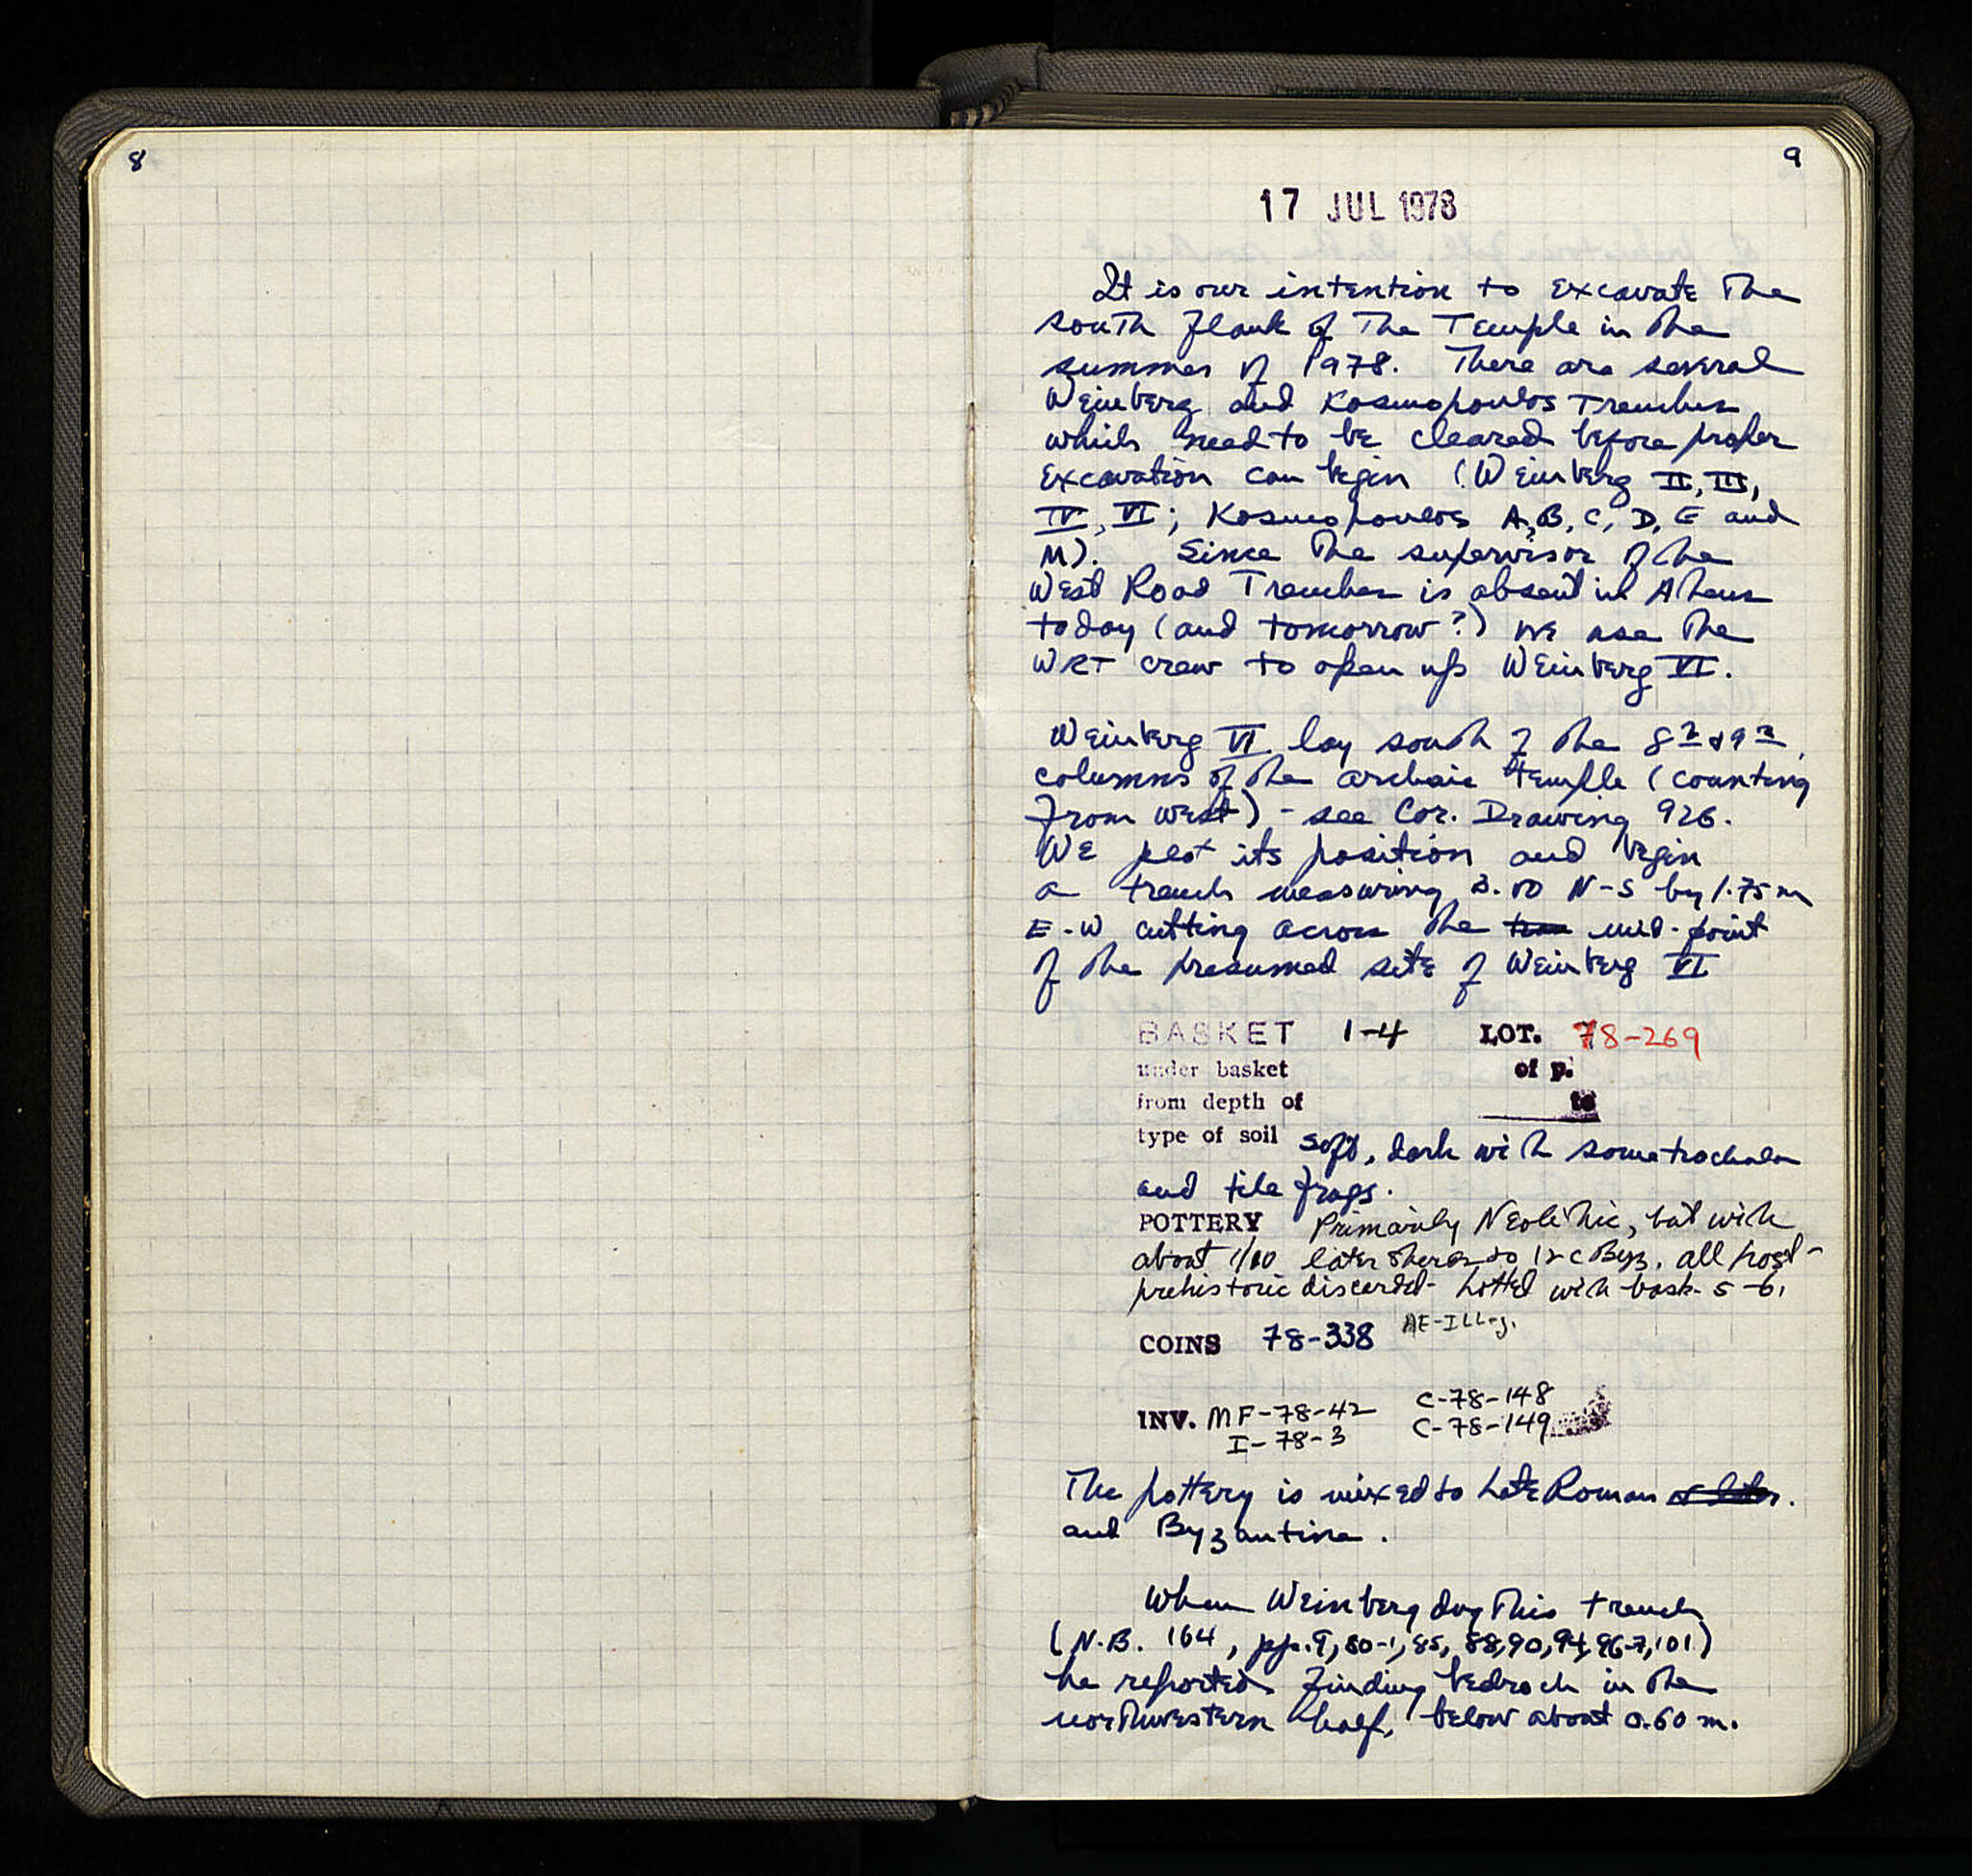 8
9
17 JUL 1978
It is our intention to excavate the
south flank of the Temple in the
summer of 1978. There are several
Weinberg and Kosmopoulos Trenches
which need to be cleared before proper
excavation can begin (Weinberg II, III,
IV, VI; Kosmopoulos A, B, C, D, E and
M). Since the supervisor of the
West Road Trenches is absent in Athens
today (and tomorrow?) we use the
WRT crew to open up Weinberg VI.
Weinberg VI lay south of the 8th & 9th
columns of the archaic temple (counting
from west) - see Cor. Drawing 926.
We plot its position and begin
a trench measuring 3.00 N-S by 1.75 m
E-W cutting across the mid-point
of the presumed site of Weinberg VI
BASKET 1-4 LOT. 78-269
under basket of p.
from depth of to
type of soil soft, dark with some trochala
and tile frags.
POTTERY Primarily Neolithic, but with
about 1/10 later sherds to 12 c Byz. all post-
prehistoric discarded - Lotted with bask. 5-6.
COINS 78-338 AE-ILLg.
INV. MF-78-42 C-78-148
I-78-3 C-78-149
The pottery is mixed to Late Roman or later.
and Byzantine.
When Weinberg dug this trench
(N.B. 164, pp. 9, 80-1, 85, 88, 90, 94, 96-7, 101)
he reported finding bedrock in the
northwestern half, below about 0.60 m.